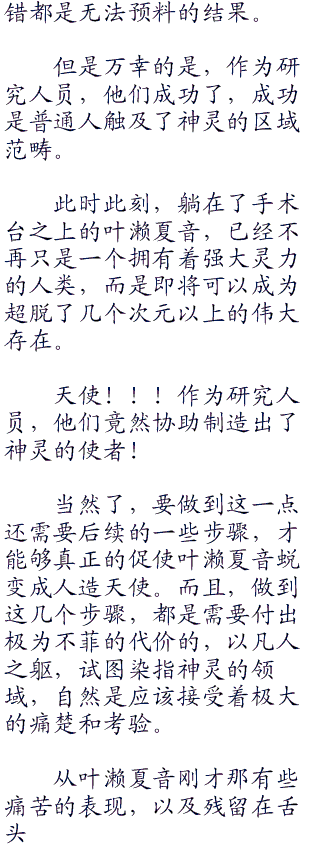 错都是无法预料的结果。
但是万幸的是，作为研
究人员，他们成功了，成功
是普通人触及了神灵的区域
范畴。
此时此刻，躺在了手术
台之上的叶濑夏音，已经不
再只是一个拥有着强大灵力
的人类，而是即将可以成为
超脱了几个次元以上的伟大
存在。
天使！！！作为研究人
员，他们竟然协助制造出了
神灵的使者！
当然了，要做到这一点
还需要后续的一些步骤，才
能够真正的促使叶濑夏音蜕
变成人造天使。而且，做到
这几个步骤，都是需要付出
极为不菲的代价的，以凡人
之躯，试图染指神灵的领
域，自然是应该接受着极大
的痛楚和考验。
从叶濑夏音刚才那有些
痛苦的表现，以及残留在舌
头